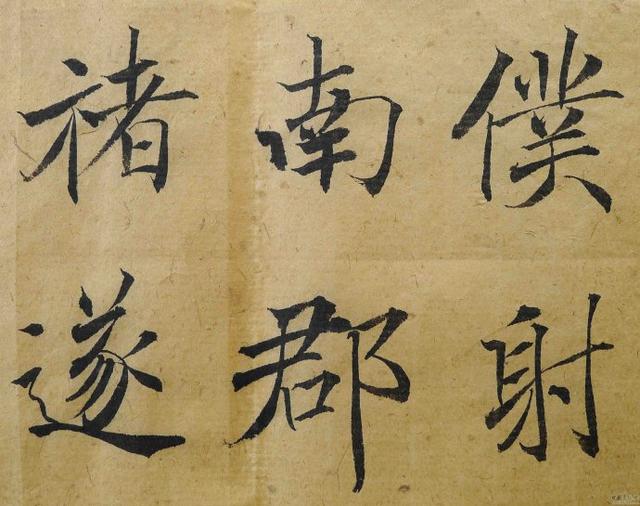 僕射
南郡
褚遂